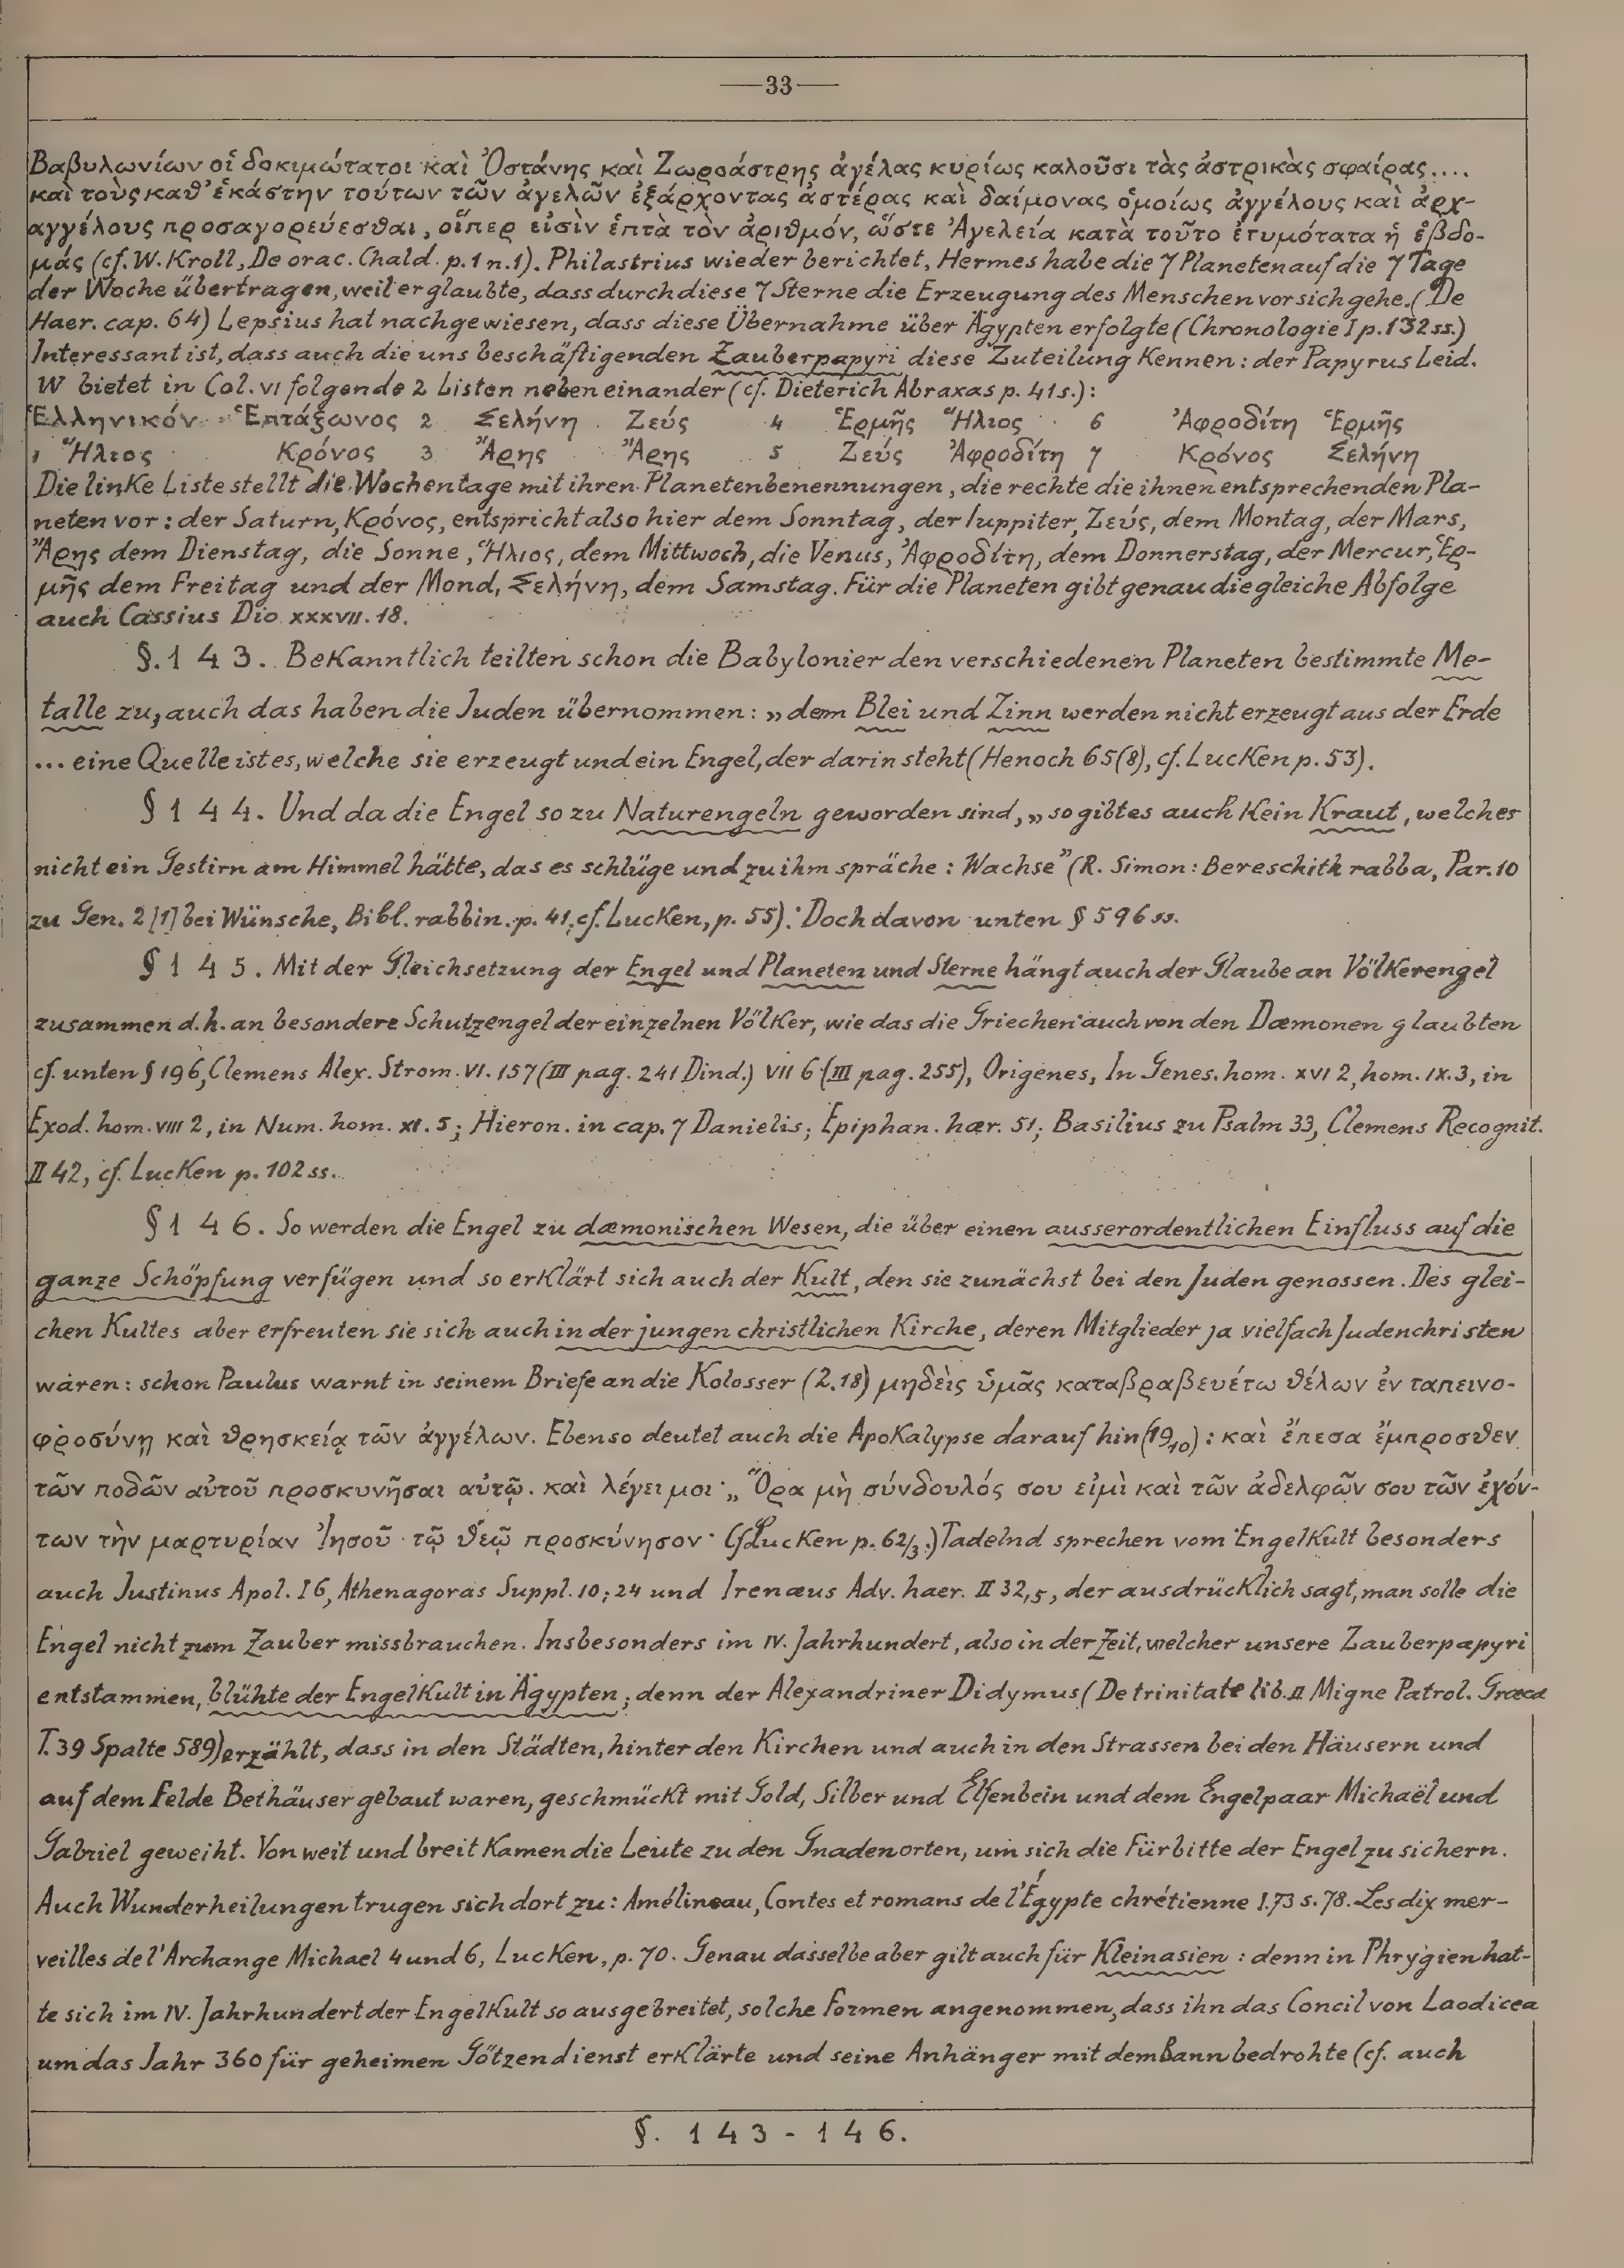 —33—
Βαβυλωνίων οἱ δοκιμώτατοι καὶ Ὀστάνης καὶ Ζωροάστρης ἀγέλας κυρίως καλοῦσι τὰς ἀστρικὰς σφαίρας....
καὶ τοὺς καθ' ἑκάστην τούτων τῶν ἀγελῶν ἐξάρχοντας ἀστέρας καὶ δαίμονας ὁμοίως ἀγγέλους καὶ ἀρχ-
αγγέλους προσαγορεύεσθαι, οἵπερ εἰσὶν ἑπτὰ τὸν ἀριθμόν, ὥστε Ἀγελεία κατὰ τοῦτο ἐτυμότατα ἡ ἑβδο-
μάς (cf. W. Kroll, De orac. Chald. p. 1 n. 1). Philastrius wieder berichtet, Hermes habe die 7 Planeten auf die 7 Tage
der Woche übertragen, weil er glaubte, dass durch diese 7 Sterne die Erzeugung des Menschen vor sich gehe. (De
Haer. cap. 64) Lepsius hat nachgewiesen, dass diese Übernahme über Ägypten erfolgte (Chronologie I p. 132 ss.)
Interessant ist, dass auch die uns beschäftigenden Zauberpapyri diese Zuteilung kennen: der Papyrus Leid.
W bietet in Col. VI folgende 2 Listen nebeneinander (cf. Dieterich Abraxas p. 41 s.):
Ἑλληνικόν Ἑπτάξωνος 2 Σελήνη Ζεύς 4 Ἑρμῆς Ἥλιος 6 Ἀφροδίτη Ἑρμῆς
1 Ἥλιος Κρόνος 3 Ἄρης Ἄρης 5 Ζεύς Ἀφροδίτη 7 Κρόνος Σελήνη
Die linke Liste stellt die Wochentage mit ihren Planetenbenennungen, die rechte die ihnen entsprechenden Pla-
neten vor: der Saturn, Κρόνος, entspricht also hier dem Sonntag, der Iuppiter, Ζεύς, dem Montag, der Mars,
Ἄρης dem Dienstag, die Sonne, Ἥλιος, dem Mittwoch, die Venus, Ἀφροδίτη, dem Donnerstag, der Mercur, Ἑρ-
μῆς dem Freitag und der Mond, Σελήνη, dem Samstag. Für die Planeten gibt genau die gleiche Abfolge
auch Cassius Dio XXXVII. 18.
§. 143. Bekanntlich teilten schon die Babylonier den verschiedenen Planeten bestimmte Me-
talle zu, auch das haben die Juden übernommen: „dem Blei und Zinn werden nicht erzeugt aus der Erde
... eine Quelle ist es, welche sie erzeugt und ein Engel, der darin steht (Henoch 65(8), cf. Lucken p. 53).
§ 144. Und da die Engel so zu Naturengeln geworden sind, „so gibt es auch kein Kraut, welches
nicht ein Gestirn am Himmel hätte, das es schlüge und zu ihm spräche: Wachse" (R. Simon: Bereschith rabba, Par. 10
zu Gen. 2 [1] bei Wünsche, Bibl. rabbin. p. 41, cf. Lucken, p. 55). Doch davon unten § 596 ss.
§ 145. Mit der Gleichsetzung der Engel und Planeten und Sterne hängt auch der Glaube an Völkerengel
zusammen d. h. an besondere Schutzengel der einzelnen Völker, wie das die Griechen auch von den Dæmonen glaubten
cf. unten § 196, Clemens Alex. Strom. VI. 157 (III pag. 241 Dind.) VII 6 (III pag. 255), Origenes, In Genes. hom. XVI 2, hom. IX. 3, in
Exod. hom. VIII 2, in Num. hom. XI. 5; Hieron. in cap. 7 Danielis; Epiphan. hær. 51; Basilius zu Psalm 33, Clemens Recognit.
II 42, cf. Lucken p. 102 ss.
§ 146. So werden die Engel zu dæmonischen Wesen, die über einen ausserordentlichen Einfluss auf die
ganze Schöpfung verfügen und so erklärt sich auch der Kult, den sie zunächst bei den Juden genossen. Des glei-
chen Kultes aber erfreuten sie sich auch in der jungen christlichen Kirche, deren Mitglieder ja vielfach Judenchristen
waren: schon Paulus warnt in seinem Briefe an die Kolosser (2.18) μηδεὶς ὑμᾶς καταβραβευέτω θέλων ἐν ταπεινο-
φροσύνῃ καὶ θρησκείᾳ τῶν ἀγγέλων. Ebenso deutet auch die Apokalypse darauf hin (19,10): καὶ ἔπεσα ἔμπροσθεν
τῶν ποδῶν αὐτοῦ προσκυνῆσαι αὐτῷ. καὶ λέγει μοι· „Ὅρα μὴ σύνδουλός σου εἰμὶ καὶ τῶν ἀδελφῶν σου τῶν ἐχόν-
των τὴν μαρτυρίαν Ἰησοῦ· τῷ θεῷ προσκύνησον· (cf. Lucken p. 62/3.) Tadelnd sprechen vom Engelkult besonders
auch Justinus Apol. I 6, Athenagoras Suppl. 10; 24 und Irenæus Adv. haer. II 32,5, der ausdrücklich sagt, man solle die
Engel nicht zum Zauber missbrauchen. Insbesonders im IV. Jahrhundert, also in der Zeit, welcher unsere Zauberpapyri
entstammen, blühte der Engelkult in Ägypten; denn der Alexandriner Didymus (De trinitate lib. II Migne Patrol. Græca
T. 39 Spalte 589) erzählt, dass in den Städten, hinter den Kirchen und auch in den Strassen bei den Häusern und
auf dem Felde Bethäuser gebaut waren, geschmückt mit Gold, Silber und Elfenbein und dem Engelpaar Michaël und
Gabriel geweiht. Von weit und breit kamen die Leute zu den Gnadenorten, um sich die Fürbitte der Engel zu sichern.
Auch Wunderheilungen trugen sich dort zu: Amélineau, Contes et romans de l'Égypte chrétienne I. 73 s. 78. Les dix mer-
veilles de l'Archange Michael 4 und 6, Lucken, p. 70. Genau dasselbe aber gilt auch für Kleinasien: denn in Phrygien hat-
te sich im IV. Jahrhundert der Engelkult so ausgebreitet, solche Formen angenommen, dass ihn das Concil von Laodicea
um das Jahr 360 für geheimen Götzendienst erklärte und seine Anhänger mit dem Bann bedrohte (cf. auch
§. 143-146.